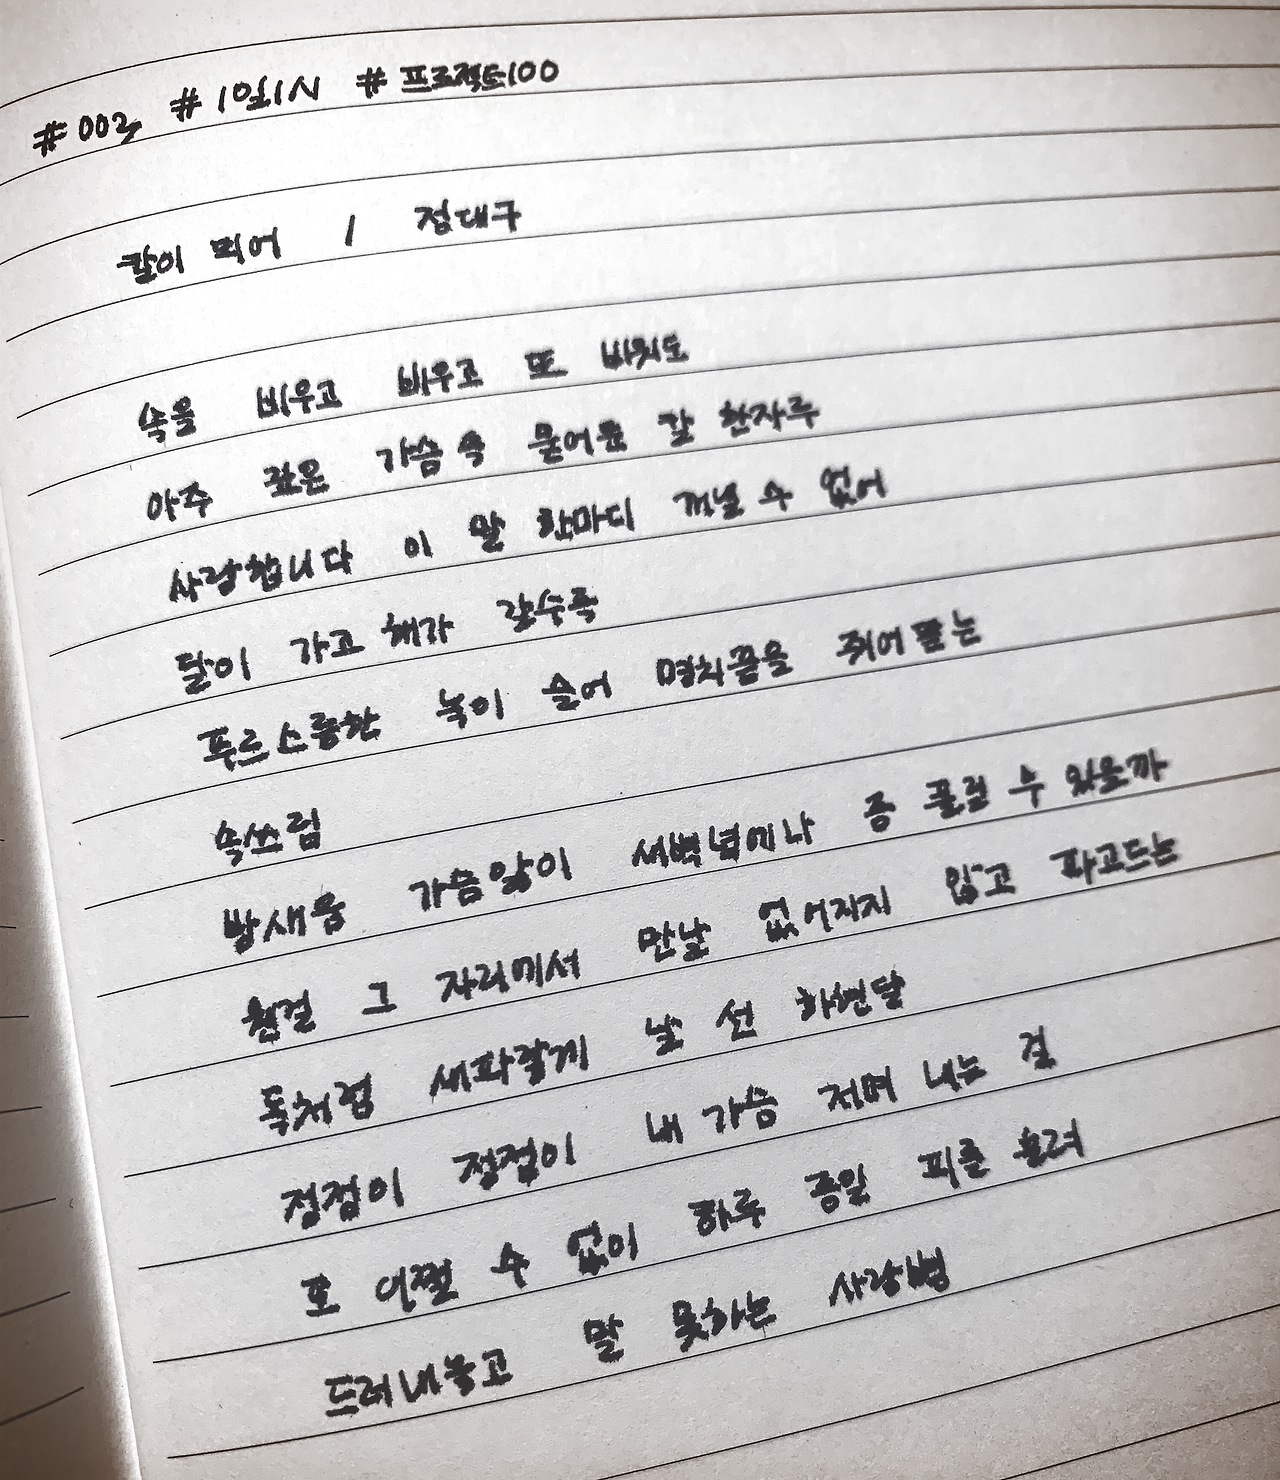 #002 #1일1시 #프로젝트100
칼이 되어 / 정대구
속을 비우고 비우고 또 비워도
아주 깊은 가슴 속 묻어둔 칼 한자루
사랑합니다 이 말 한마디 꺼낼 수 없어
달이 가고 해가 갈수록
푸르스름한 녹이 슬어 명치끝을 쥐어뜯는
속쓰림
밤새움 가슴앓이 새벽녘에나 좀 풀릴 수 있을까
웬걸 그 자리에서 만날 없어지지 않고 파고드는
독처럼 새파랗게 날 선 하현달
점점이 점점이 내 가슴 저며 내는 걸
또 어쩔 수 없이 하루 종일 피를 흘려
드러내놓고 말 못하는 사랑병